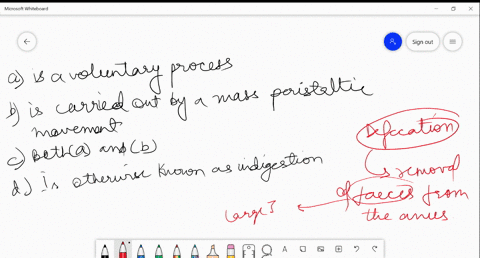 Microsoft Whiteboard
Sign out
a) is a voluntary process
b) is carried out by a mass peristaltic
movement
c) both (a) and (b)
d) Is otherwise known as indigestion
Defecation
removal
of faeces from
the anus
large